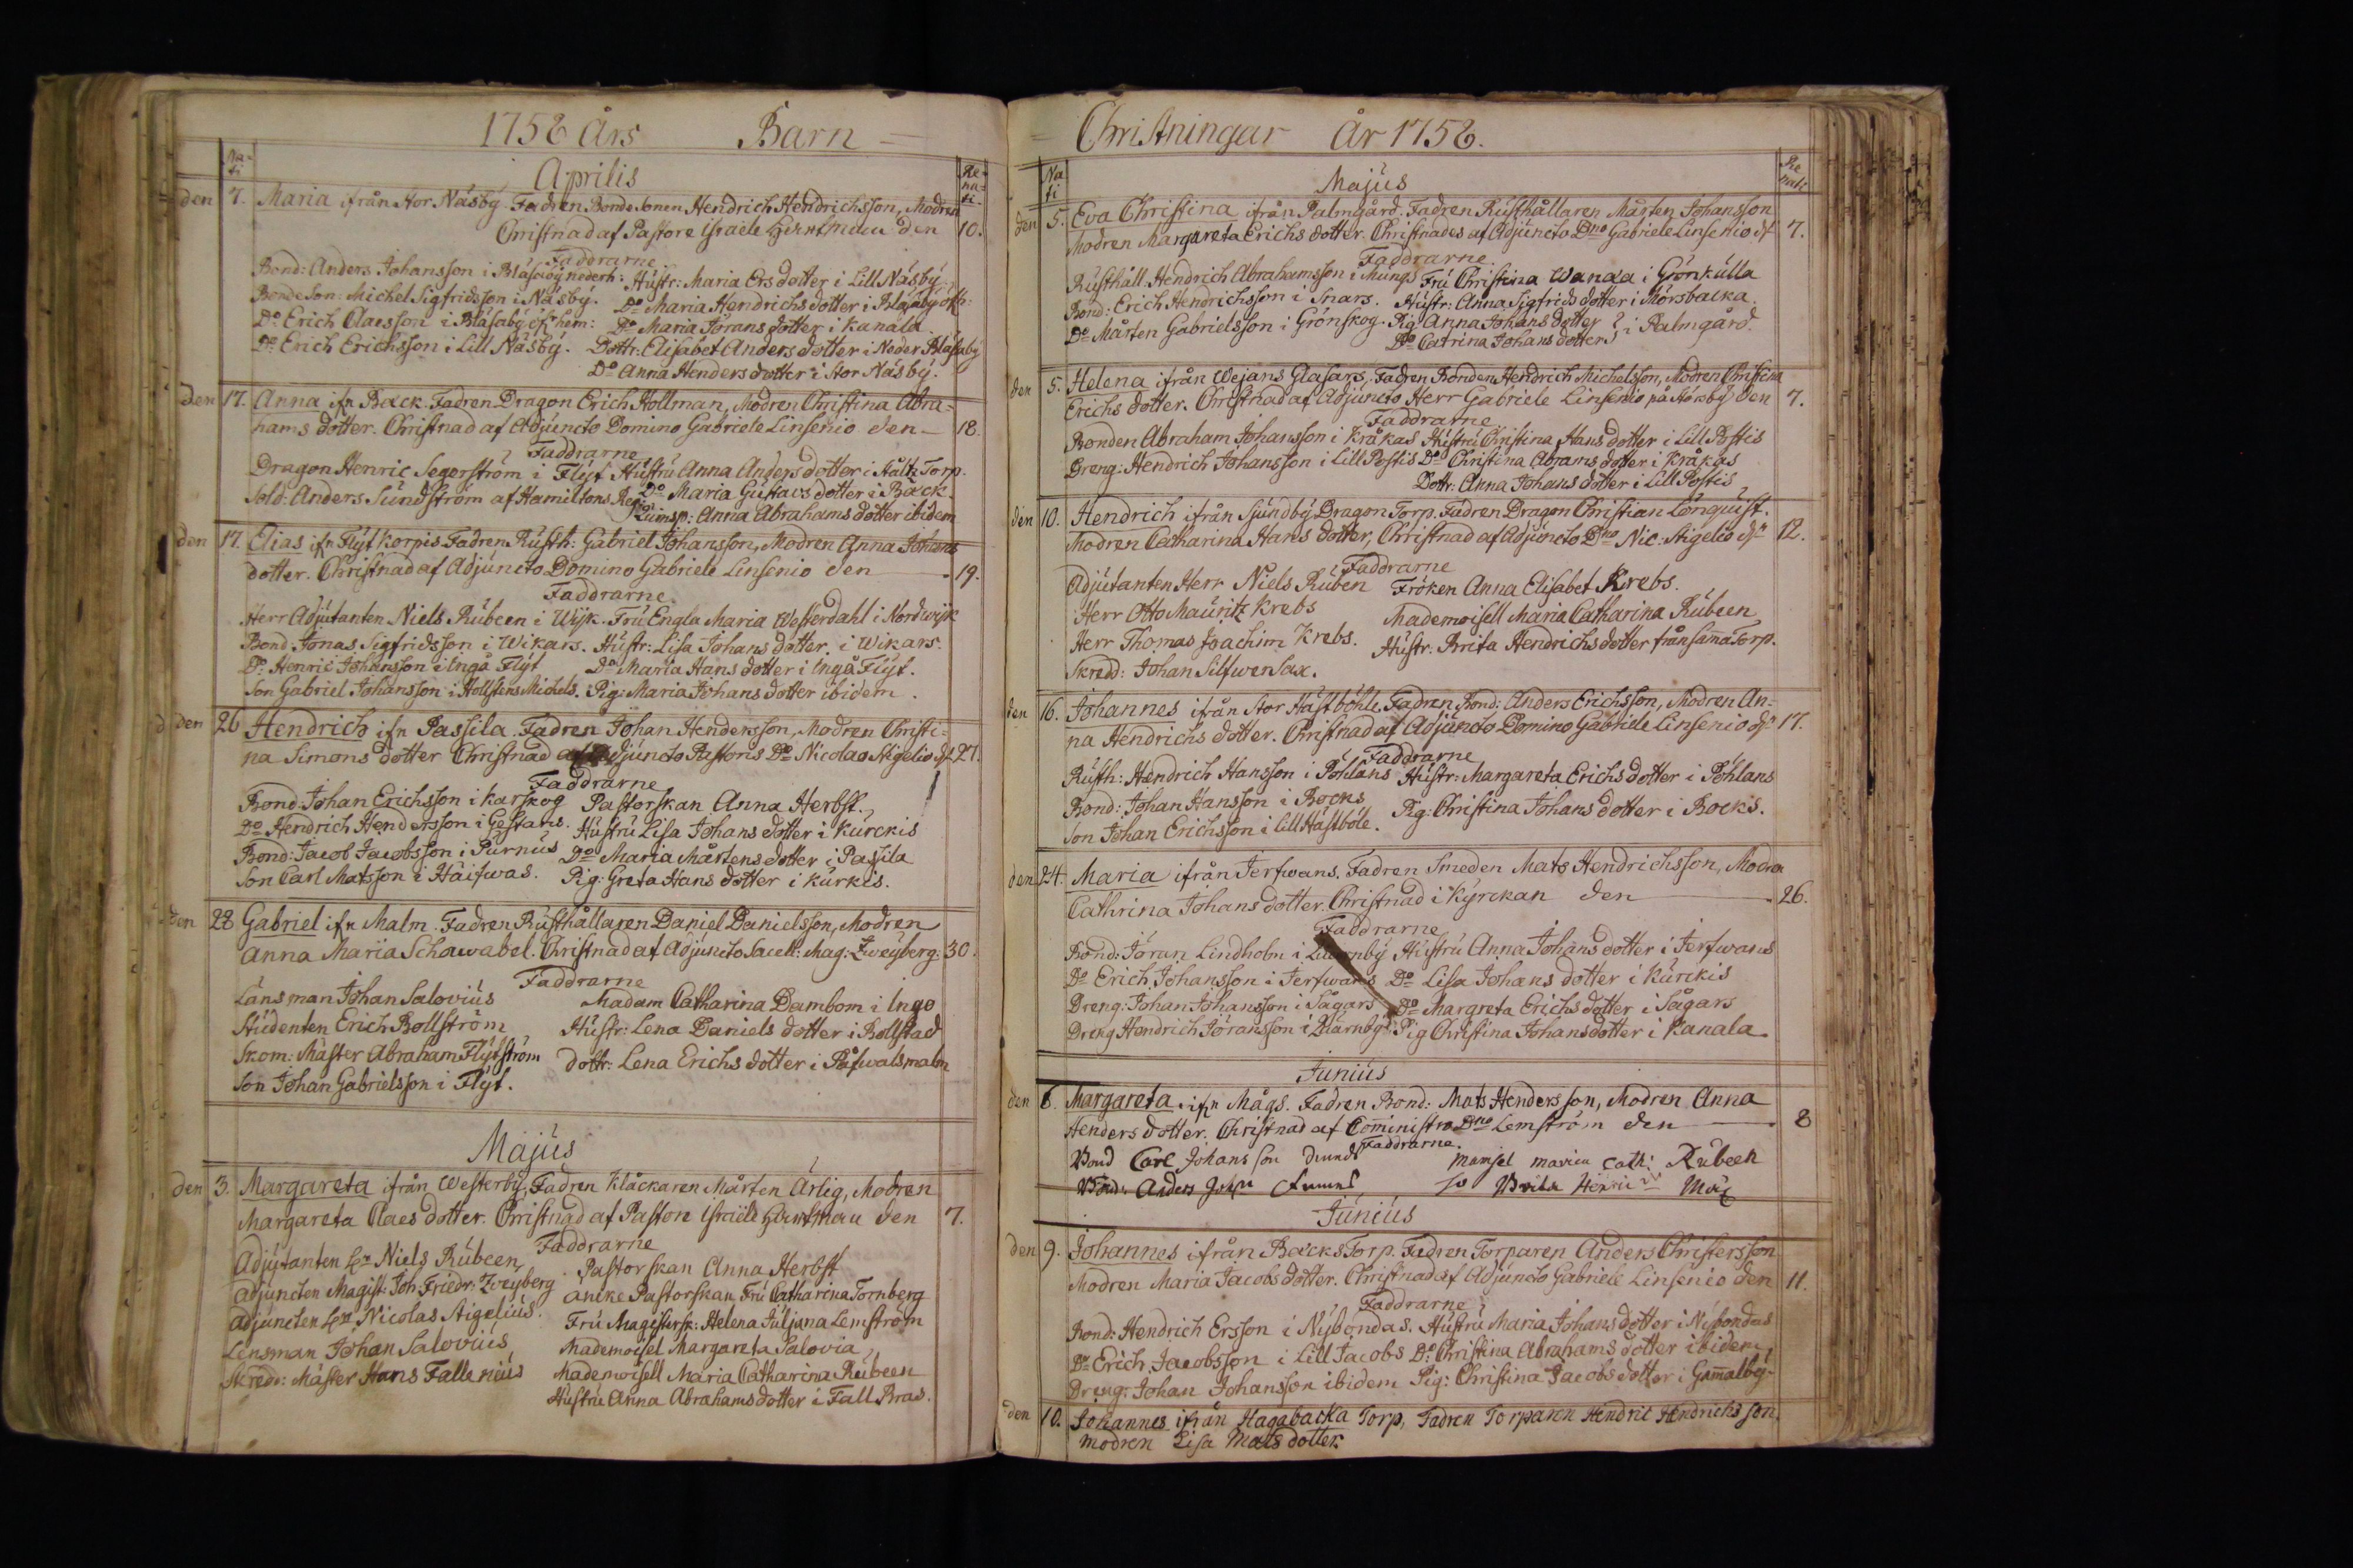 1758 Års Barn =
Na-
ti
Aprilis
Re-
na-
ti-
den 7. Maria ifrån Stor Näsbÿ. Fadren Bonde Sonen Hendrich Hendrichsson, Modren
Christnad af Pastore Israele den 10.
Faddrarne
Bond: Anders Johansson i Blåsabÿ nederh: Hustr: Maria Ersdotter i Lill Näsbÿ
Bonde Son: Michel Sigfridsson i Näsbÿ. Do Maria Hendrichs dotter i Blåsabÿ
Do Erich Claesson i Blåsabÿ hem: Do Maria Jörans dotter i Kanala.
Do Erich Erichsson i Lill Näsbÿ. Dottr: Elisabet Anders dotter i Neder Blåsabÿ
Do Anna Henders dotter i Stor Näsbÿ.
den 17. Anna ifn Back. Fadren Dragon Erich Hollman, Modren Christina Abra-
hams dotter. Christnad af Adjuncto Domino Gabriele Linsenio den 18.
Faddrarne
Dragon Henric Segerström i Flÿt Hustru Anna Anders dotter i Torp.
Sold: Anders Sundström af Hamiltons Reg: Do Maria Gustavs dotter i Back.
Anna Abrahams dotter ibidem
den 17. Elias ifn Flÿt korpis Fadren Rusth: Gabriel Johansson, Modren Anna Johans
dotter. Christnad af Adjuncto Domino Gabriele Linsenio den 19.
Faddrarne
Herr Adjutanten Niels Rubeen i Wijk. Fru Engla Maria Westerdahl i Nordwijk
Bond. Jonas Sigfridsson i Wikars. Hustr: Lisa Johans dotter i Wikars.
Do Henric Johansson i Inga Flÿt Do Maria Hans dotter i Ingå Flÿt.
Son Gabriel Johansson i Hollstens Michels. Pig: Maria Johans dotter ibidem.
den 26 Hendrich ifn Passila. Fadren Johan Hendersson, Modren Christi-
na Simons dotter Christnad af Adjuncto Pastoris Do Nicolao Aigelio dn 27.
Faddrarne
Bond: Johan Erichsson i Karskog Pastorskan Anna Herbst.
Do Hendrich Hendersson i Gestans. Hustru Lisa Johans dotter i Kurckis
Bond: Jacob Jacobsson i Purnus Do Maria Mårtens dotter i Passila
Son Carl Matsson i Haifwas. Pig: Greta Hans dotter i Kurkis.
den 28 Gabriel ifn Malm. Fadren Rusthållaren Daniel Danielsson, Modren
Anna Maria Schawabel. Christnad af Adjuncto Sacell: Mag: Zweÿberg: 30.
Faddrarne
Länsman Johan Salovius Madam Catharina Dambom i Ingo
Studenten Erich Bollström Hustr: Lena Daniels dotter i Bollstad
Skom: Mäster Abraham Flÿtström Dottr: Lena Erichs dotter i Råfwalsmalm
Son Johan Gabrielsson i Flÿt.
Majus
den 3. Margareta ifrån Westerbÿ, Fadren Klåckaren Mårten Ärlig, Modren
Margareta Claes dotter. Christnad af Pastore Israele den 7.
Faddrarne
Adjutanten Niels Rubeen Pastorskan Anna Herbst
Adjuncten Magist: Joh: Friedr: Zveÿberg Ancke Pastorskan Fru Catharina Tornberg
Adjuncten Nicolas Aigelius. Fru Magistersk: Helena Juliana Lemström
Lensman Johan Salovius Mademoisel Margareta Salovia
Skredd: Mäster Hans Fallenius Mademoisell Maria Catharina Rubeen
Hustru Anna Abrahams dotter i Fall Bras.
Christningar År 1758.
Na
ti
Majus
Re
nati
den 5. Eva Christina ifrån Palmgård. Fadren Rusthållaren Mårten Johansson
Modren Margareta Erichs dotter. Christnades af Adjuncto Dno Gabriele Linsenio dn 7.
Faddrarne
Rusthåll: Hendrich Abrahamsson i Mungs Fru Christina Wanda i Grönkulla
Bond: Erich Hendrichsson i Snars. Hustr: Anna Sigfrids dotter i Mörsbacka.
Do Mårten Gabrielsson i Grönskog. Pig Anna Johans dotter } i Palmgård.
Do Catrina Johans dotter
den 5. Helena ifrån Wejans Glasars, Fadren Bonden Hendrich Michelsson, Modren Christina
Erichs dotter. Christnad af Adjuncto Herr Gabriele Linsenio på den 7.
Faddrarne
Bonden Abraham Johansson i Kråkas Hustru Christina Hans dotter i Lill Postis
Dreng: Hendrich Johansson i Lill Postis Do Christina Abrams dotter i Kråkas
Dottr: Anna Johans dotter i Lill Postis
den 10. Hendrich ifrån Sjundbÿ Dragon Torp. Fadren Dragon Christian Lönquist.
Modren Catharina Hans dotter, Christnad af Adjuncto Dno Nic: Aigelio dn 12.
Faddrarne
Adjutanten Herr Niels Ruben Fröken Anna Elisabet Krebs.
Herr Otto Mauritz Krebs Mademoisell Maria Catharina Rubeen
Herr Thomas Joachim Krebs. Hustr: Brita Hendrichs dotter från sama Torp.
Skredd: Johan Silfwersax.
den 16. Johannes ifrån Stor Hästböhle. Fadren Bond: Anders Erichsson, Modren An-
na Hendrichs dotter. Christnad af Adjuncto Domino Gabriele Linsenio dn 17.
Faddrarne
Rusth: Hendrich Hansson i Pöhlans Hustr: Margareta Erichs dotter i Pöhlans
Bond: Johan Hansson i Bocks Pig: Christina Johans dotter i Bocks.
Son Johan Erichsson i Lill Hästböle.
den 24. Maria ifrån Jerfwans. Fadren Smeden Mats Hendrichsson, Modren
Cathrina Johans dotter. Christnad i Kÿrckan den 26.
Faddrarne
Bond: Jöran Lindholm i Hustru Anna Johans dotter i Jerfwans
Do Erich Johansson i Jerfwans Do Lisa Johans dotter i Kurckis
Dreng: Johan Johansson i Sågars Do Margreta Erichs dotter i Sågars
Dreng Hendrich Jöransson i Pig Christina Johans dotter i Kanala.
Junius
den 6. Margareta ifn Mågs. Fadren Bond: Mats Hendersson, Modren Anna
Henders dotter. Christnad af Cominstro Dno Lemström den 8
Faddrarne.
Bond Carl Johansson Mamsel maria Cath: Rubeen
Bond: Anders
Junius
den 9. Johannes ifrån Backs Torp. Fadren Torparen Anders Christersson
Modren Maria Jacobs dotter. Christnad af Adjuncto Gabriele Linsenio den 11.
Faddrarne
Bond: Hendrich Ersson i Nÿbondas. Hustru Maria Johans dotter i Nÿbondas
Do Erich Jacobsson i Lill Jacobs Do Christina Abrahams dotter ibidem
Dreng: Johan Johansson ibidem Pig: Christina Jacobs dotter i Gamalbÿ.
den 10. Johannes ifrån Hagabacka Torp, Fadren Torparen Hendric Hendrichs son,
modren Lisa Mats dotter.